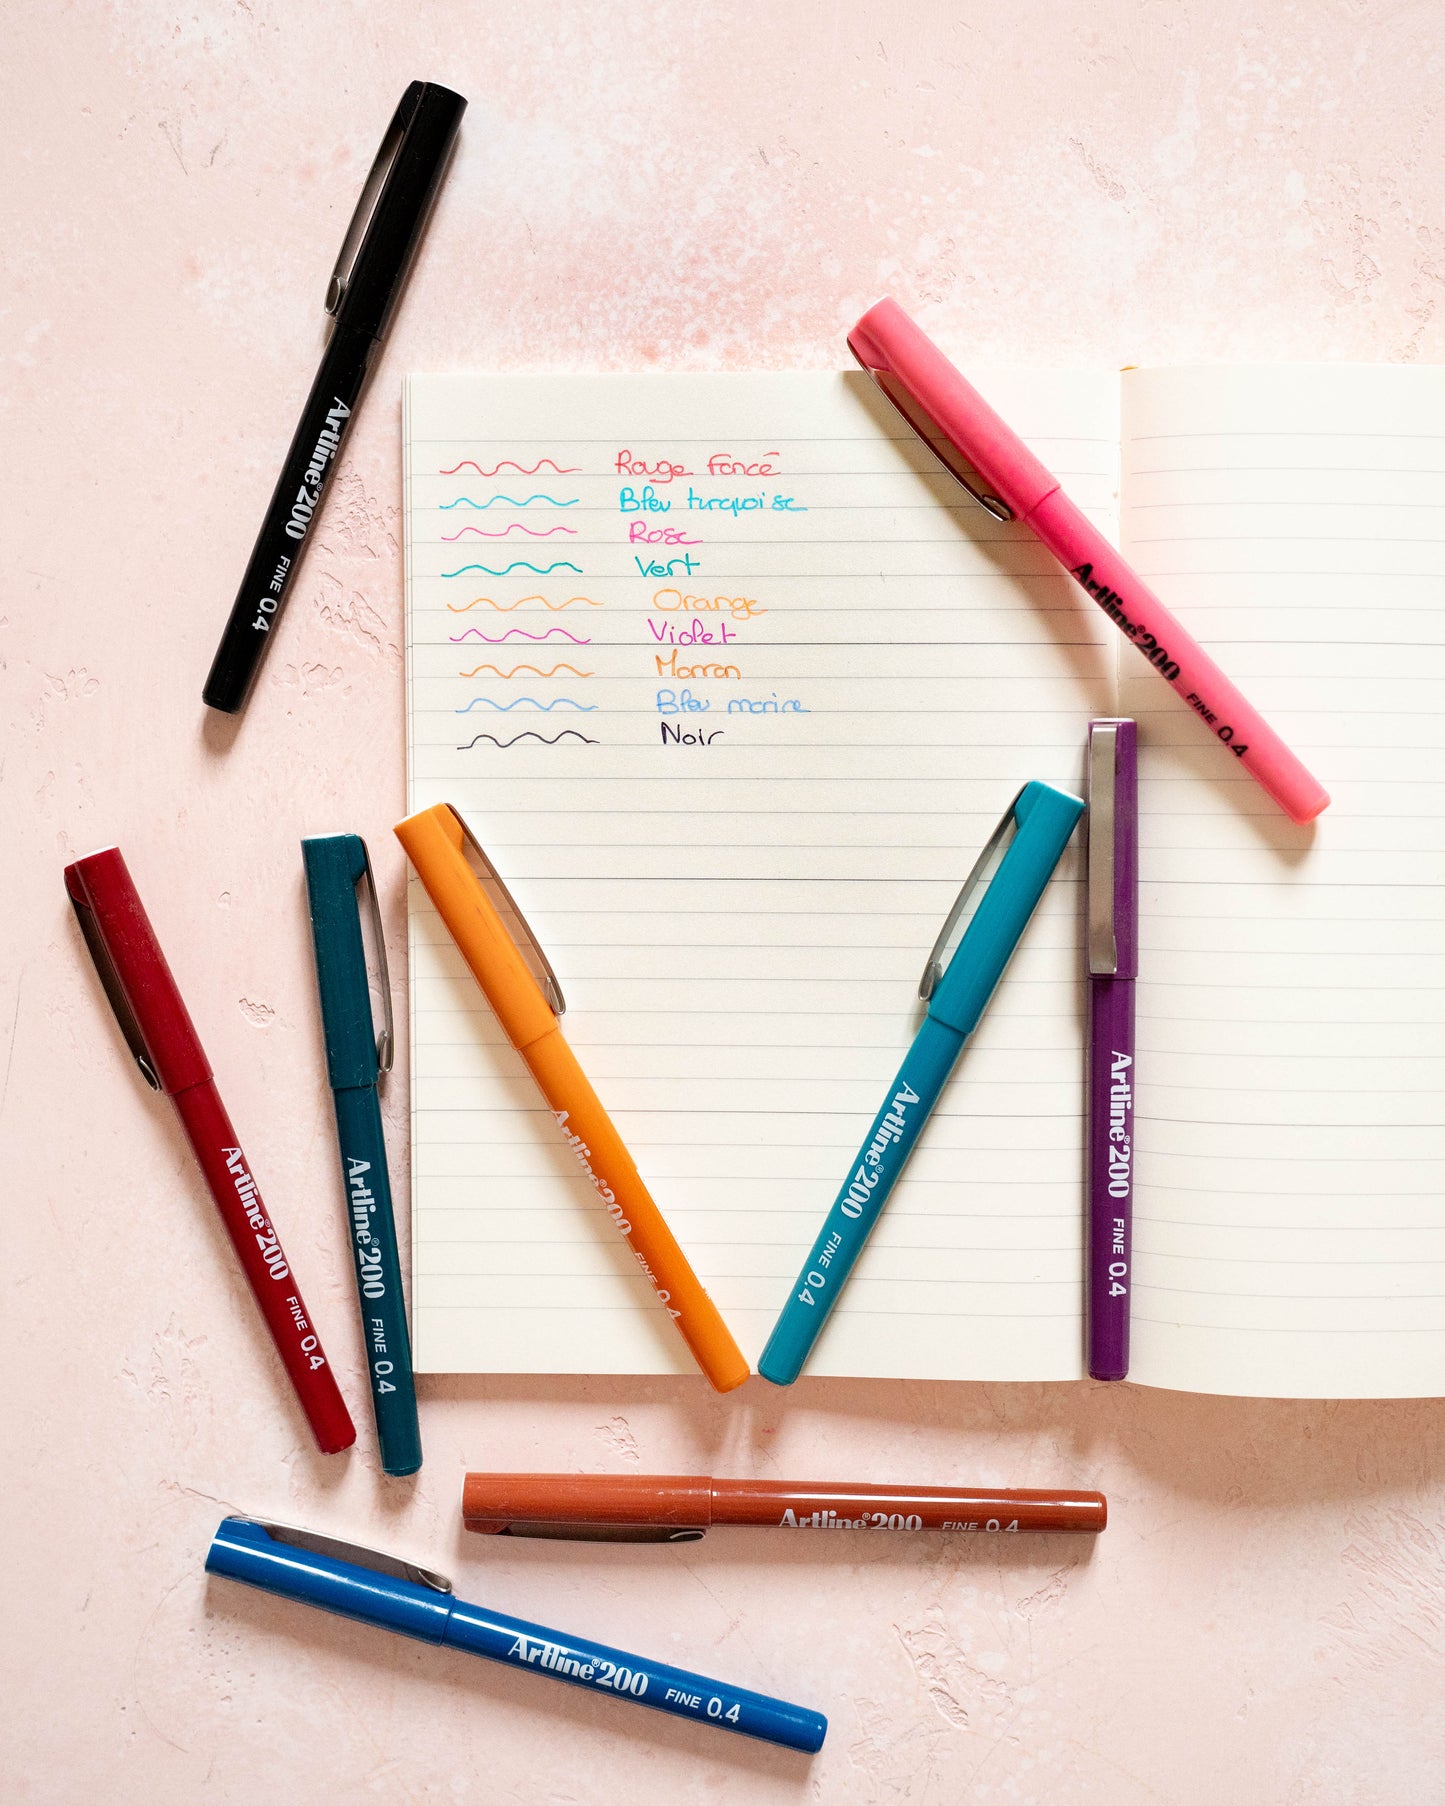 Artline®200 FINE 0.4
Rouge foncé
Bleu turquoise
Rose
Vert
Orange
Violet
Marron
Bleu marine
Noir
Artline®200 FINE 0.4
Artline®200 FINE 0.4
Artline®200 FINE 0.4
Artline®200 FINE 0.4
Artline®200 FINE 0.4
Artline®200 FINE 0.4
Artline®200 FINE 0.4
Artline®200 FINE 0.4